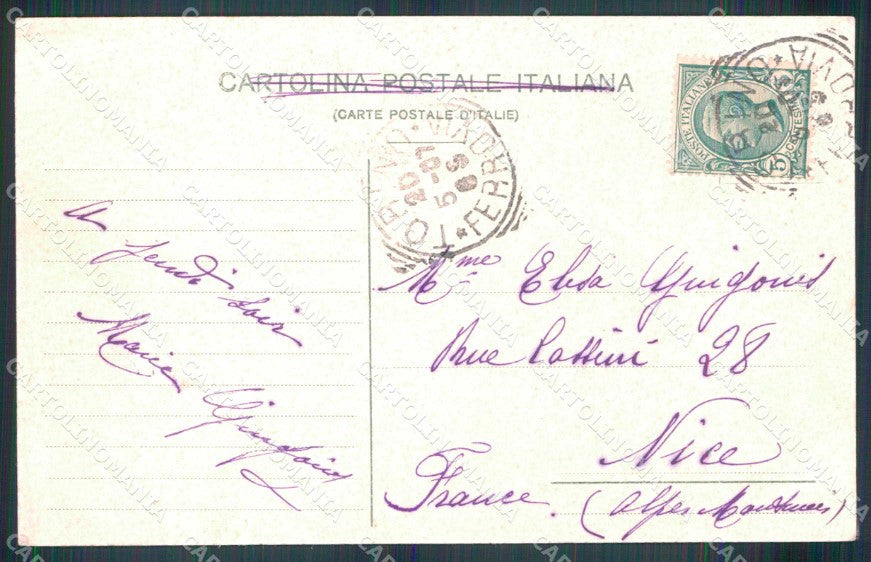 CARTOLINA POSTALE ITALIANA
(CARTE POSTALE D'ITALIE)
POSTE ITALIANE
CENTESIMI
5
TORINO FERROVIA
20-10
5 09
A Jeudi soir
Marie Guigonis
Mme Elisa Guigonis
Rue Cassini 28
Nice
(Alpes Maritimes)
France
CARTOLINOMANIA